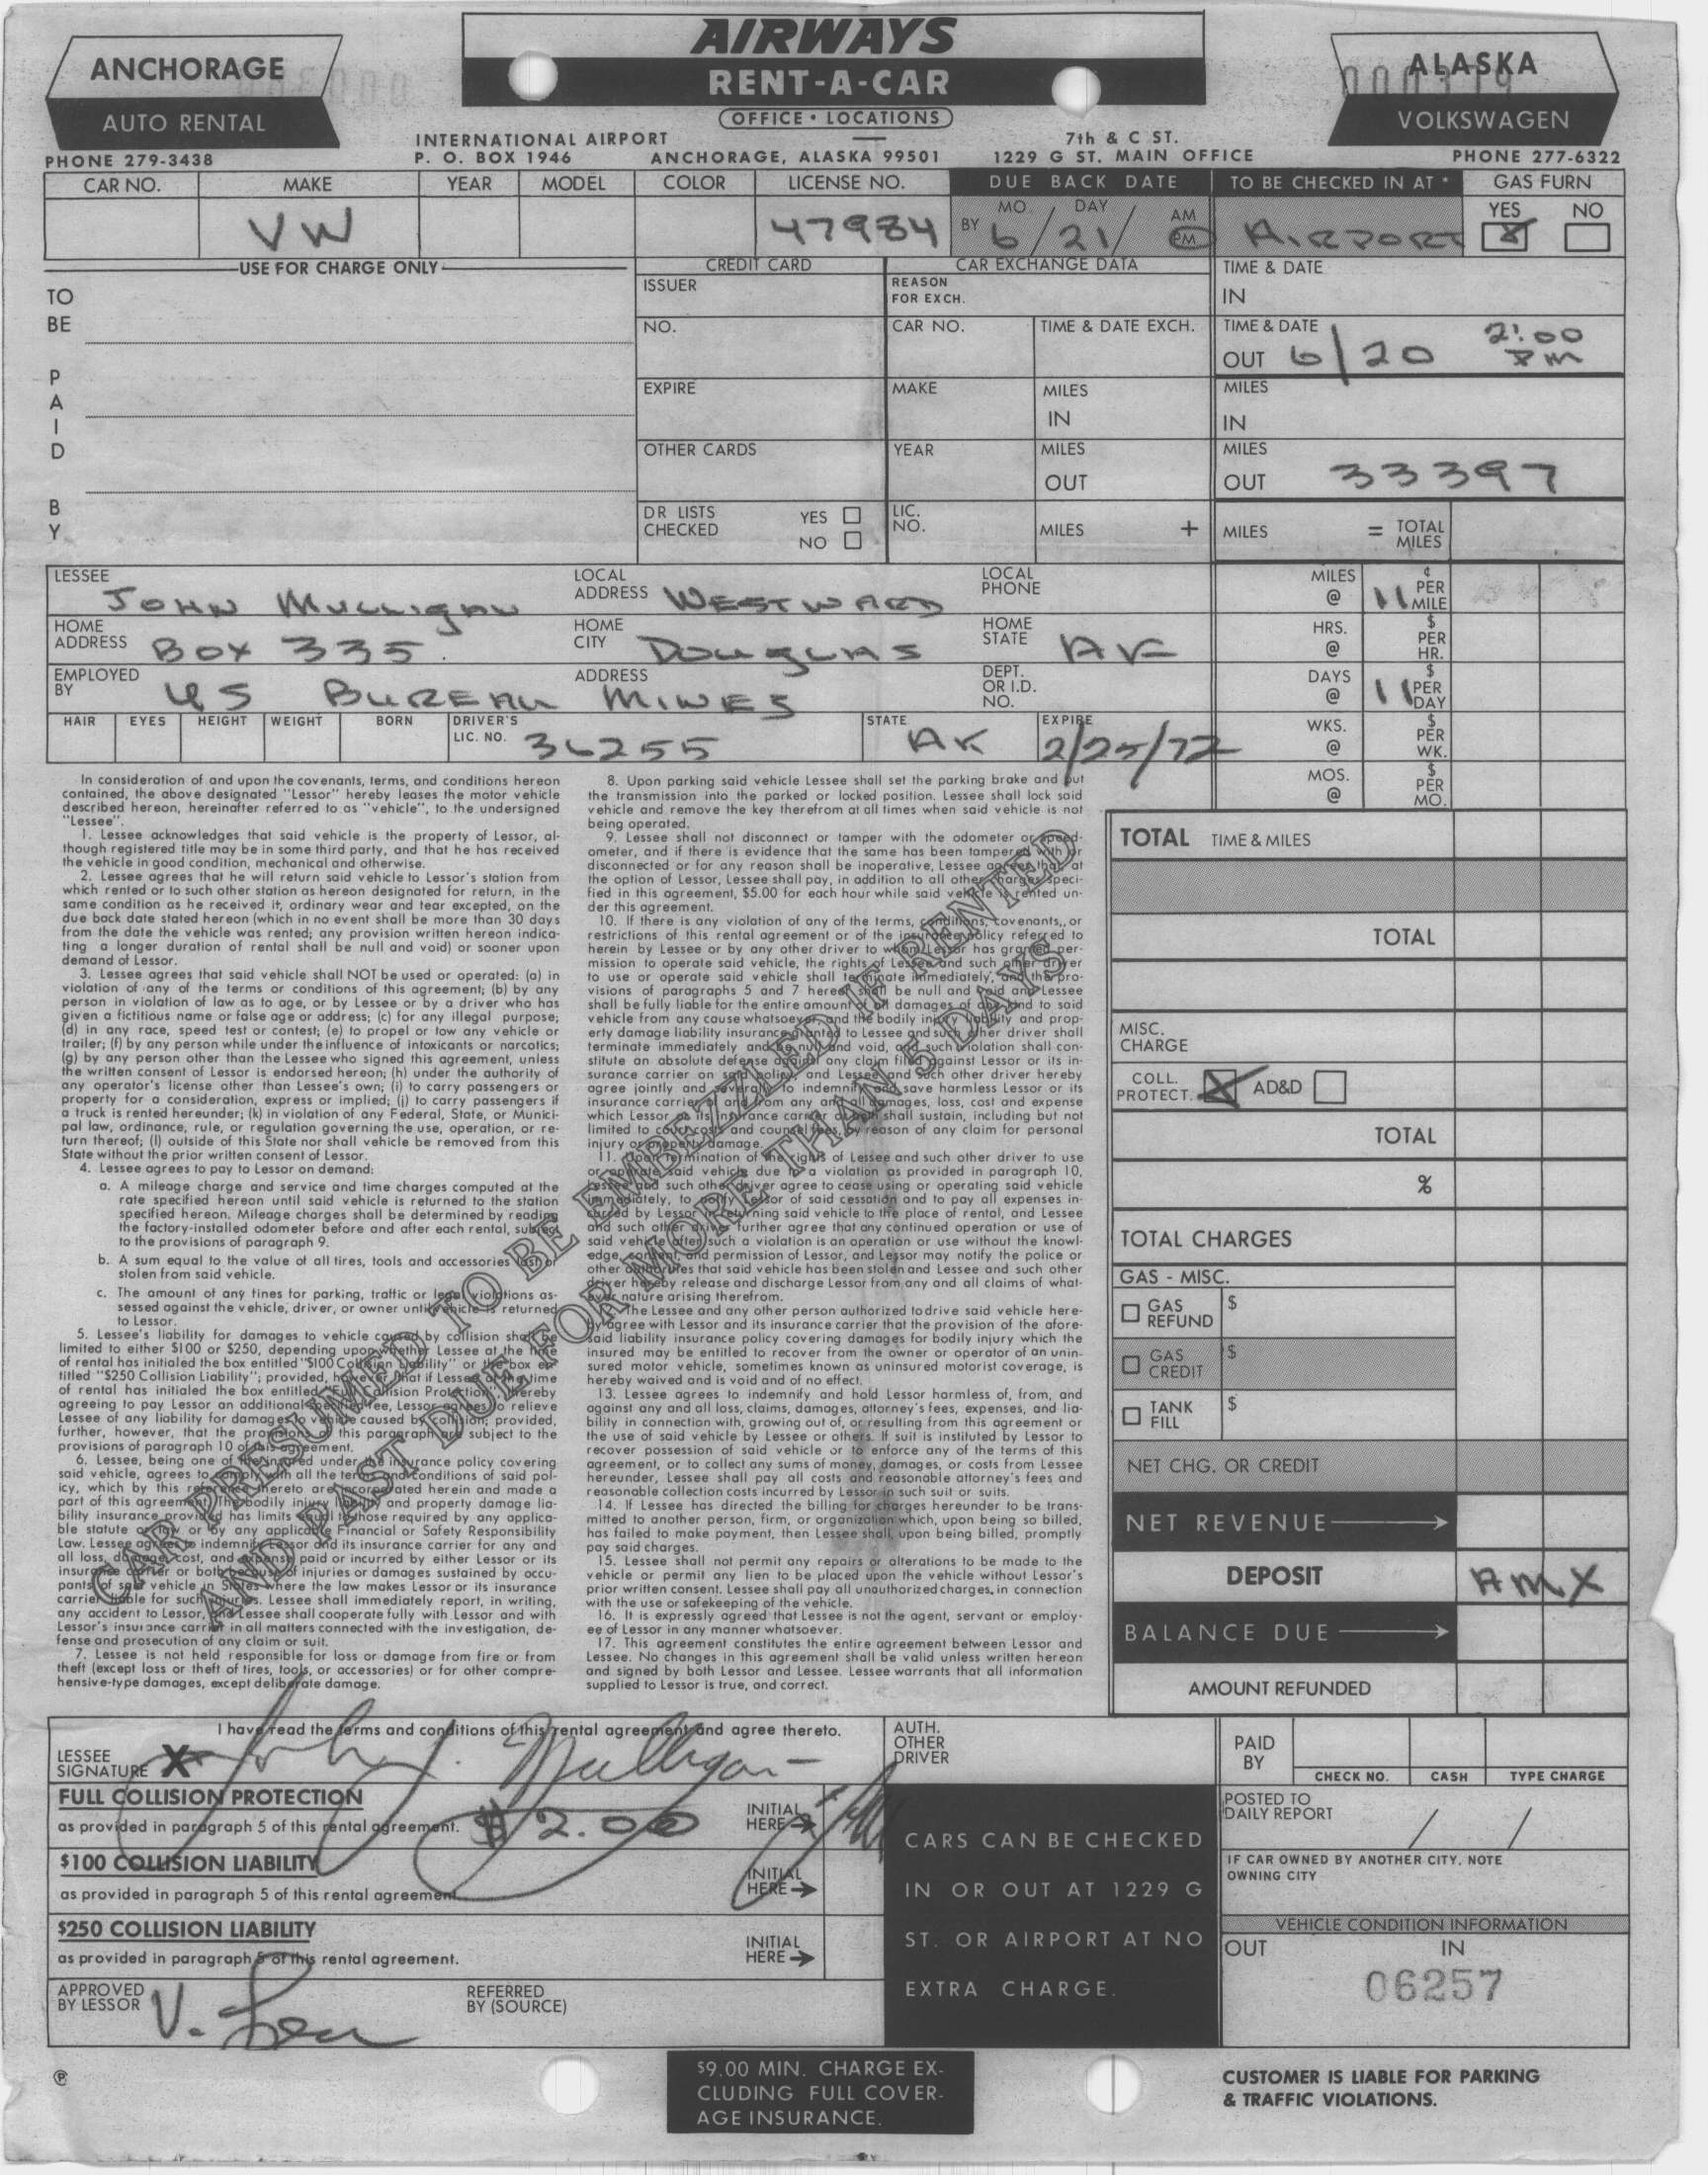 AIRWAYS
RENT-A-CAR
OFFICE • LOCATIONS
ANCHORAGE
AUTO RENTAL
PHONE 279-3438
ALASKA
VOLKSWAGEN
PHONE 277-6322
INTERNATIONAL AIRPORT
P. O. BOX 1946
ANCHORAGE, ALASKA 99501
7th & C ST.
1229 G ST. MAIN OFFICE
CAR NO. MAKE YEAR MODEL COLOR LICENSE NO. DUE BACK DATE TO BE CHECKED IN AT * GAS FURN
VW 47984 BY MO. 6 / DAY 21 / AM PM AIRPORT YES X NO
USE FOR CHARGE ONLY
TO BE PAID BY
CREDIT CARD
ISSUER
NO.
EXPIRE
OTHER CARDS
DR LISTS CHECKED YES NO
CAR EXCHANGE DATA
REASON FOR EXCH.
CAR NO. TIME & DATE EXCH.
MAKE MILES IN
YEAR MILES OUT
LIC. NO. MILES +
TIME & DATE IN
TIME & DATE OUT 6/20 2:00 PM
MILES IN
MILES OUT 33397
MILES = TOTAL MILES
LESSEE John Mulligan LOCAL ADDRESS WESTWARD LOCAL PHONE
HOME ADDRESS Box 335 HOME CITY Douglas HOME STATE AK
EMPLOYED BY US BUREAU MINES ADDRESS DEPT. OR I.D. NO.
HAIR EYES HEIGHT WEIGHT BORN DRIVER'S LIC. NO. 36255 STATE AK EXPIRE 2/25/72
MILES @ 11 ¢ PER MILE
HRS. @ $ PER HR.
DAYS @ 11 $ PER DAY
WKS. @ $ PER WK.
MOS. @ $ PER MO.
In consideration of and upon the covenants, terms, and conditions hereon
contained, the above designated "Lessor" hereby leases the motor vehicle
described hereon, hereinafter referred to as "vehicle", to the undersigned
"Lessee".
1. Lessee acknowledges that said vehicle is the property of Lessor, al-
though registered title may be in some third party, and that he has received
the vehicle in good condition, mechanical and otherwise.
2. Lessee agrees that he will return said vehicle to Lessor's station from
which rented or to such other station as hereon designated for return, in the
same condition as he received it, ordinary wear and tear excepted, on the
due back date stated hereon (which in no event shall be more than 30 days
from the date the vehicle was rented; any provision written hereon indica-
ting a longer duration of rental shall be null and void) or sooner upon
demand of Lessor.
3. Lessee agrees that said vehicle shall NOT be used or operated: (a) in
violation of any of the terms or conditions of this agreement; (b) by any
person in violation of law as to age, or by Lessee or by a driver who has
given a fictitious name or false age or address; (c) for any illegal purpose;
(d) in any race, speed test or contest; (e) to propel or tow any vehicle or
trailer; (f) by any person while under the influence of intoxicants or narcotics;
(g) by any person other than the Lessee who signed this agreement, unless
the written consent of Lessor is endorsed hereon; (h) under the authority of
any operator's license other than Lessee's own; (i) to carry passengers or
property for a consideration, express or implied; (j) to carry passengers if
a truck is rented hereunder; (k) in violation of any Federal, State, or Munici-
pal law, ordinance, rule, or regulation governing the use, operation, or re-
turn thereof; (l) outside of this State nor shall vehicle be removed from this
State without the prior written consent of Lessor.
4. Lessee agrees to pay to Lessor on demand:
a. A mileage charge and service and time charges computed at the
rate specified hereon until said vehicle is returned to the station
specified hereon. Mileage charges shall be determined by reading
the factory-installed odometer before and after each rental, subject
to the provisions of paragraph 9.
b. A sum equal to the value of all tires, tools and accessories lost or
stolen from said vehicle.
c. The amount of any fines for parking, traffic or legal violations as-
sessed against the vehicle, driver, or owner until vehicle is returned
to Lessor.
5. Lessee's liability for damages to vehicle caused by collision shall be
limited to either $100 or $250, depending upon whether Lessee at the time
of rental has initialed the box entitled "$100 Collision Liability" or the box en-
titled "$250 Collision Liability"; provided, however that if Lessee at the time
of rental has initialed the box entitled "Full Collision Protection", thereby
agreeing to pay Lessor an additional specified fee, Lessor agrees to relieve
Lessee of any liability for damages to vehicle caused by collision; provided,
further, however, that the provisions of this paragraph are subject to the
provisions of paragraph 10 of this agreement.
6. Lessee, being one of the insured under the insurance policy covering
said vehicle, agrees to comply with all the terms and conditions of said pol-
icy, which by this reference thereto are incorporated herein and made a
part of this agreement. The bodily injury liability and property damage lia-
bility insurance provided has limits equal to those required by any applica-
ble statute or law or by any applicable Financial or Safety Responsibility
Law. Lessee agrees to indemnify Lessor and its insurance carrier for any and
all loss, damage, cost, and expense paid or incurred by either Lessor or its
insurance carrier or both because of injuries or damages sustained by occu-
pants of said vehicle in States where the law makes Lessor or its insurance
carrier liable for such injuries. Lessee shall immediately report, in writing,
any accident to Lessor, and Lessee shall cooperate fully with Lessor and with
Lessor's insurance carrier in all matters connected with the investigation, de-
fense and prosecution of any claim or suit.
7. Lessee is not held responsible for loss or damage from fire or from
theft (except loss or theft of tires, tools, or accessories) or for other compre-
hensive-type damages, except deliberate damage.
8. Upon parking said vehicle Lessee shall set the parking brake and put
the transmission into the parked or locked position. Lessee shall lock said
vehicle and remove the key therefrom at all times when said vehicle is not
being operated.
9. Lessee shall not disconnect or tamper with the odometer or speed-
ometer, and if there is evidence that the same has been tampered with or
disconnected or for any reason shall be inoperative, Lessee agrees that at
the option of Lessor, Lessee shall pay, in addition to all other charges speci-
fied in this agreement, $5.00 for each hour while said vehicle is rented un-
der this agreement.
10. If there is any violation of any of the terms, conditions, covenants,, or
restrictions of this rental agreement or of the insurance policy referred to
herein by Lessee or by any other driver to whom Lessor has granted per-
mission to operate said vehicle, the rights of Lessee and such other driver
to use or operate said vehicle shall terminate immediately, and the pro-
visions of paragraphs 5 and 7 hereof shall be null and void and Lessee
shall be fully liable for the entire amount of all damages of any kind to said
vehicle from any cause whatsoever, and the bodily injury liability and prop-
erty damage liability insurance granted to Lessee and such other driver shall
terminate immediately and be null and void, and such violation shall con-
stitute an absolute defense against any claim filed against Lessor or its in-
surance carrier on said policy, and Lessee and such other driver hereby
agree jointly and severally to indemnify and save harmless Lessor or its
insurance carrier of and from any and all damages, loss, cost and expense
which Lessor or its insurance carrier or both shall sustain, including but not
limited to court costs and counsel fees, by reason of any claim for personal
injury or property damage.
11. Upon termination of the rights of Lessee and such other driver to use
or operate said vehicle due to a violation as provided in paragraph 10,
Lessee and such other driver agree to cease using or operating said vehicle
immediately, to notify Lessor of said cessation and to pay all expenses in-
curred by Lessor in returning said vehicle to the place of rental, and Lessee
and such other driver further agree that any continued operation or use of
said vehicle after such a violation is an operation or use without the knowl-
edge, consent, and permission of Lessor, and Lessor may notify the police or
other authorities that said vehicle has been stolen and Lessee and such other
driver hereby release and discharge Lessor from any and all claims of what-
ever nature arising therefrom.
12. The Lessee and any other person authorized to drive said vehicle here-
by agree with Lessor and its insurance carrier that the provision of the afore-
said liability insurance policy covering damages for bodily injury which the
insured may be entitled to recover from the owner or operator of an unin-
sured motor vehicle, sometimes known as uninsured motorist coverage, is
hereby waived and is void and of no effect.
13. Lessee agrees to indemnify and hold Lessor harmless of, from, and
against any and all loss, claims, damages, attorney's fees, expenses, and lia-
bility in connection with, growing out of, or resulting from this agreement or
the use of said vehicle by Lessee or others. If suit is instituted by Lessor to
recover possession of said vehicle or to enforce any of the terms of this
agreement, or to collect any sums of money, damages, or costs from Lessee
hereunder, Lessee shall pay all costs and reasonable attorney's fees and
reasonable collection costs incurred by Lessor in such suit or suits.
14. If Lessee has directed the billing for charges hereunder to be trans-
mitted to another person, firm, or organization which, upon being so billed,
has failed to make payment, then Lessee shall, upon being billed, promptly
pay said charges.
15. Lessee shall not permit any repairs or alterations to be made to the
vehicle or permit any lien to be placed upon the vehicle without Lessor's
prior written consent. Lessee shall pay all unauthorized charges, in connection
with the use or safekeeping of the vehicle.
16. It is expressly agreed that Lessee is not the agent, servant or employ-
ee of Lessor in any manner whatsoever.
17. This agreement constitutes the entire agreement between Lessor and
Lessee. No changes in this agreement shall be valid unless written hereon
and signed by both Lessor and Lessee. Lessee warrants that all information
supplied to Lessor is true, and correct.
CAR PRESUMED TO BE EMBEZZLED IF RENTED
AND PAST DUE FOR MORE THAN 5 DAYS
TOTAL TIME & MILES
TOTAL
MISC. CHARGE
COLL. PROTECT. X AD&D
TOTAL
%
TOTAL CHARGES
GAS - MISC.
GAS REFUND $
GAS CREDIT $
TANK FILL $
NET CHG. OR CREDIT
NET REVENUE
DEPOSIT AMX
BALANCE DUE
AMOUNT REFUNDED
I have read the terms and conditions of this rental agreement and agree thereto.
LESSEE SIGNATURE X John J. Mulligan
FULL COLLISION PROTECTION
as provided in paragraph 5 of this rental agreement. $2.00 INITIAL HERE
$100 COLLISION LIABILITY
as provided in paragraph 5 of this rental agreement. INITIAL HERE
$250 COLLISION LIABILITY
as provided in paragraph 5 of this rental agreement. INITIAL HERE
APPROVED BY LESSOR V. REFERRED BY (SOURCE)
AUTH. OTHER DRIVER
CARS CAN BE CHECKED
IN OR OUT AT 1229 G
ST. OR AIRPORT AT NO
EXTRA CHARGE.
PAID BY CHECK NO. CASH TYPE CHARGE
POSTED TO DAILY REPORT / /
IF CAR OWNED BY ANOTHER CITY, NOTE
OWNING CITY
VEHICLE CONDITION INFORMATION
OUT IN
06257
$9.00 MIN. CHARGE EX-
CLUDING FULL COVER-
AGE INSURANCE.
CUSTOMER IS LIABLE FOR PARKING
& TRAFFIC VIOLATIONS.